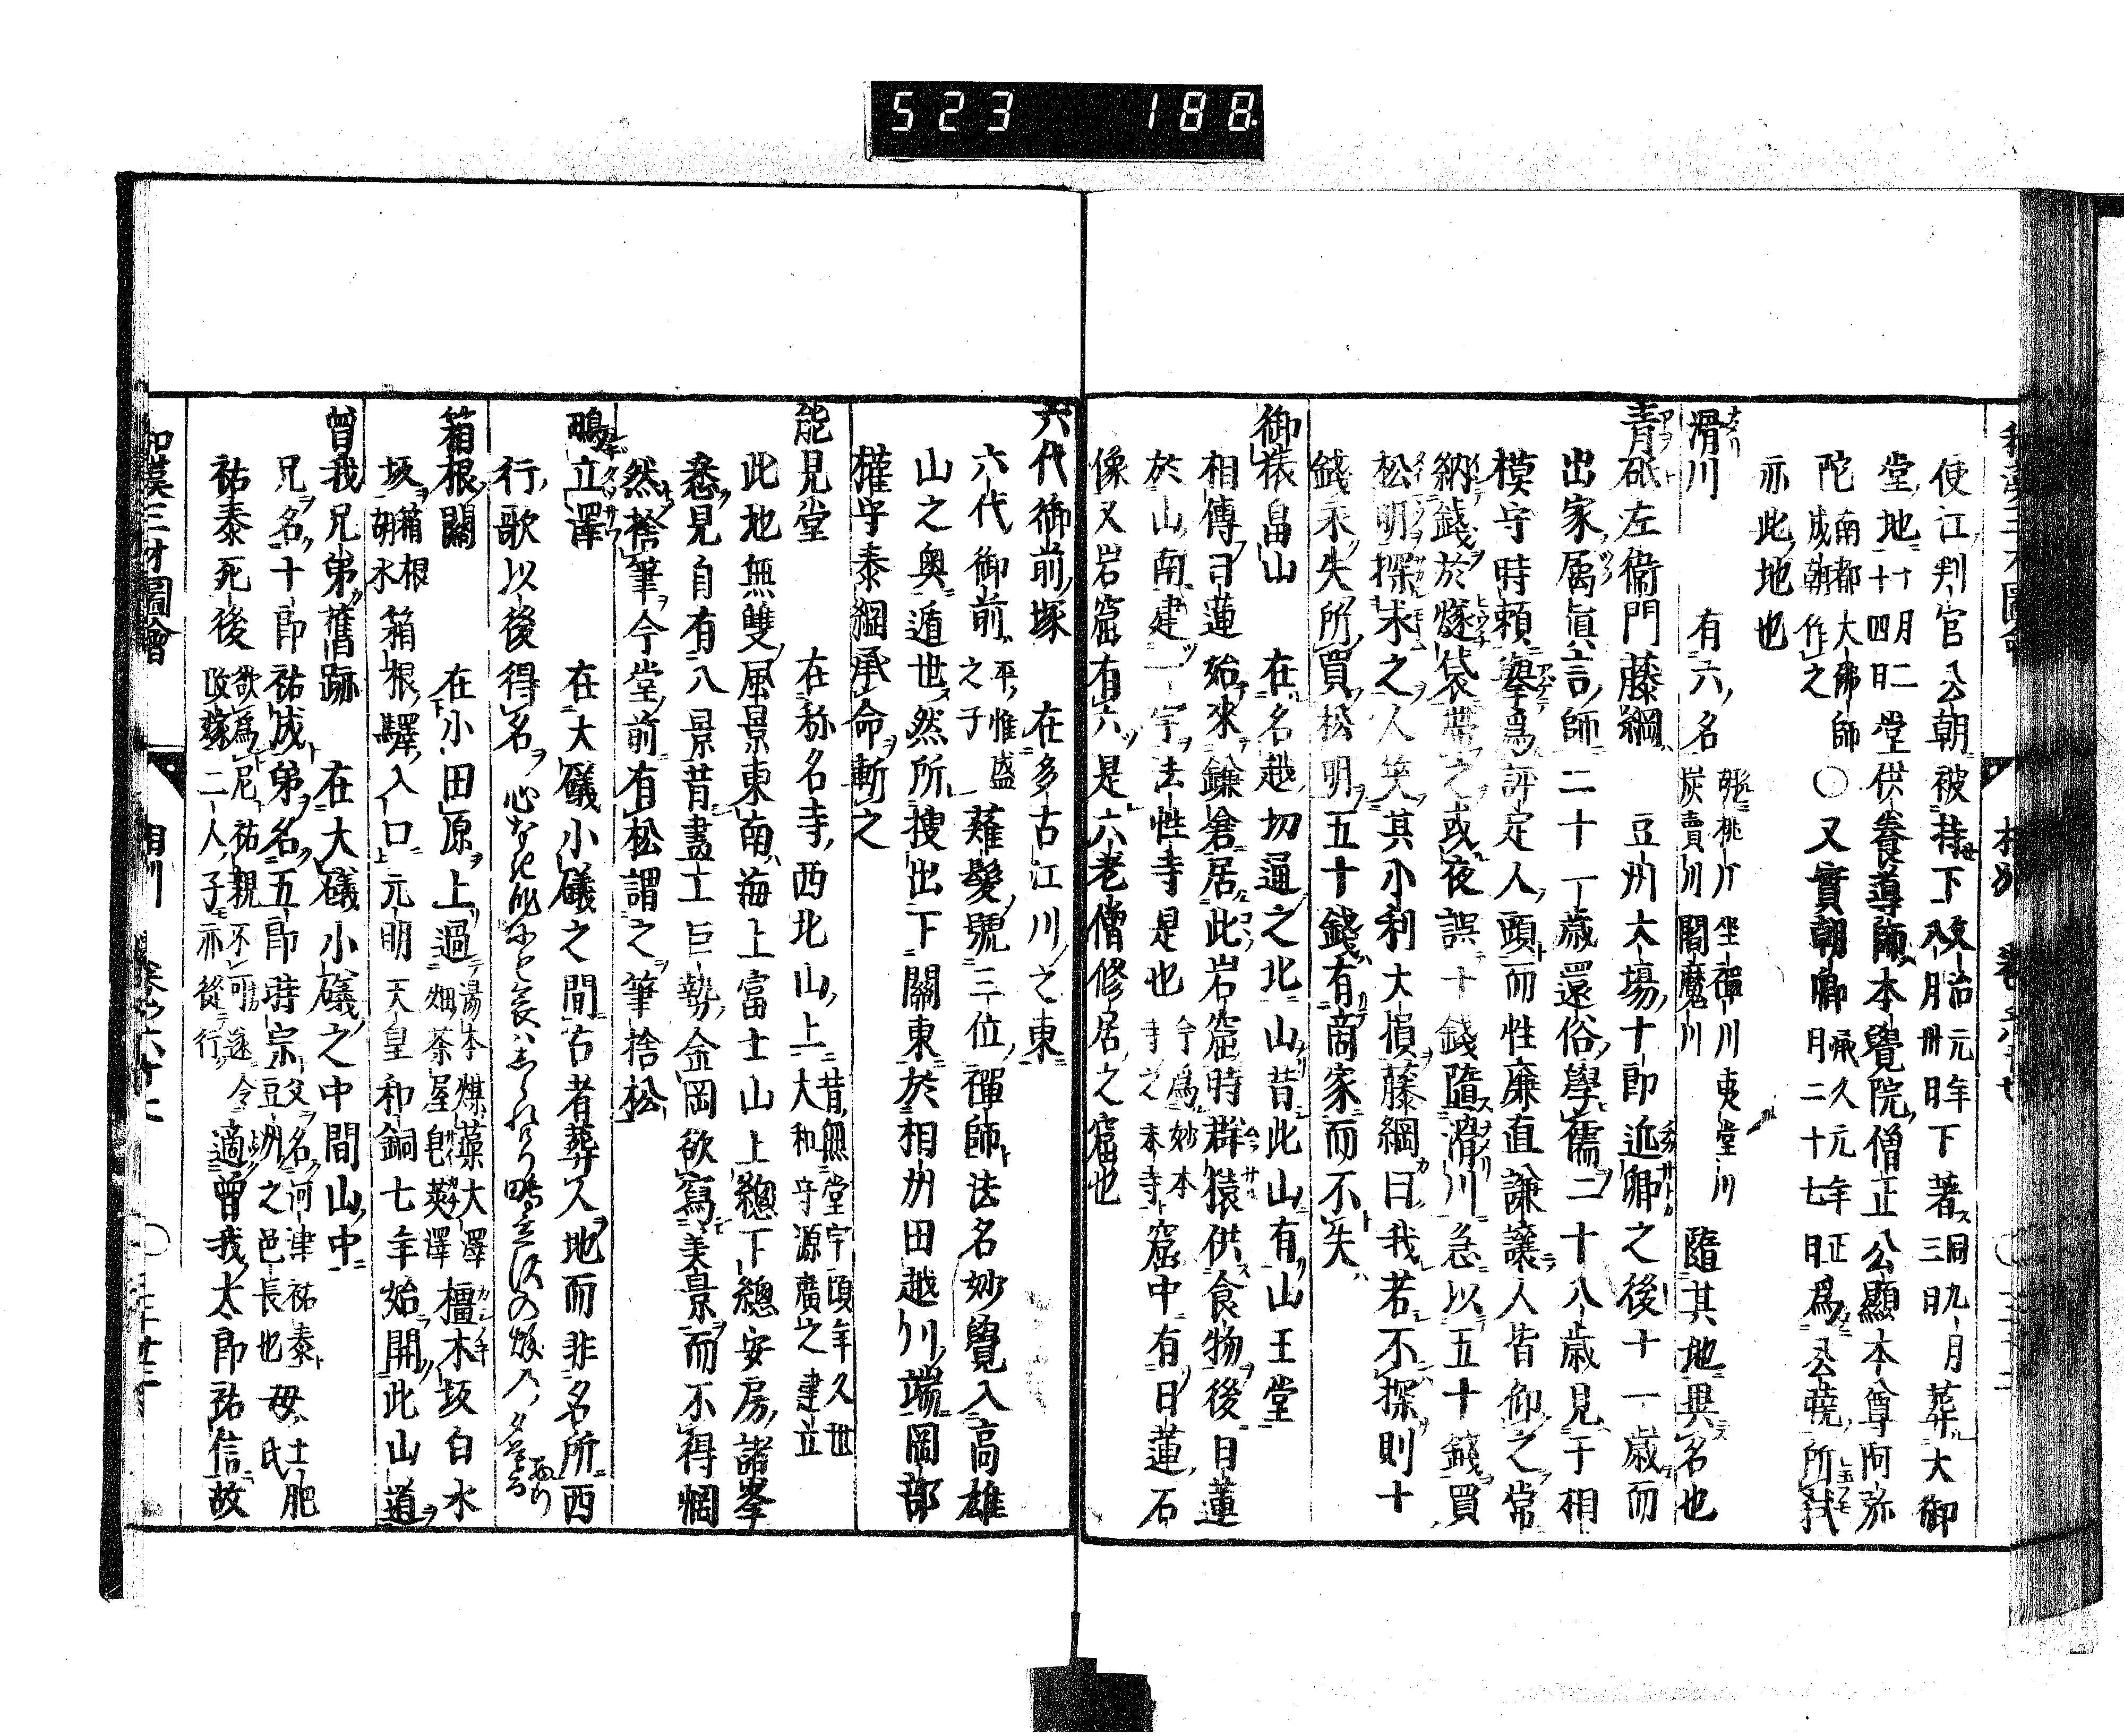 523 188
使江判官公朝被持下文治元年八月卅日下著同九月三日葬大御
堂地十一月二十四日堂供養導師本覺院僧正公顯本尊阿弥
陀南都大佛師成朝作之〇又實朝卿承久元年正月二十七日爲公曉所弑
亦此地也
滑川 有六名 胡桃川 坐禪川 夷堂川 炭賣川 閻魔川 隨其地異名也
青砥左衞門藤綱 豆州大場十郎近郷之後十一歲而
出家屬眞言師二十一歲還俗學儒二十八歲見于相
模守時頼擧爲評定人頭而性廉直謙讓人皆仰之常
納錢於燧袋帶之或夜誤十錢隨滑川急以五十錢買
松明探求之人笑其小利大損藤綱曰我若不探則十
錢永失所買松明五十錢有商家而不失
御猿畠山 在名越切通之北山昔此山有山王堂
相傳日蓮始來鎌倉居此岩窟時群猿供食物後日蓮
於山南建一宇法性寺是也 今爲妙本寺之末寺 窟中有日蓮石
像又岩窟有六是六老僧修居之窟也
六代御前塚 在多古江川之東
六代御前 平惟盛之子 薙髮號三位禪師法名妙覺入高雄
山之奥遁世然所搜出下關東於相州田越川端岡部
權守泰綱承命斬之
能見堂 在称名寺西北山上 昔無堂宇頃年久世大和守源廣之建立
此地無雙風景東南海上富士山上總下總安房諸峯
悉見自有八景昔畫工巨勢金岡欲寫美景而不得惘
然捨筆今堂前有松謂之筆捨松
鴫立澤 在大礒小礒之間古者葬人地而非名所西
行歌以後得名 心なき身にも哀はしられけり鴫立沢の秋の夕暮 西行
箱根關 在小田原上過 湯本 煤藻 大澤 畑 茶屋 皀莢澤 橿木坂白水
坂 箱根胡水 箱根驛入口元明天皇和銅七年始開此山道
曾我兄弟舊跡 在大礒小礒之中間山中
兄名十郎祐成弟名五郎時宗 父名河津祐泰 豆州之邑長也 母土肥氏
祐泰死後 欲爲尼祐親不可遂令改嫁 適曾我太郎祐信故二人子亦從行
和漢三才圖會 相州 卷之六十七